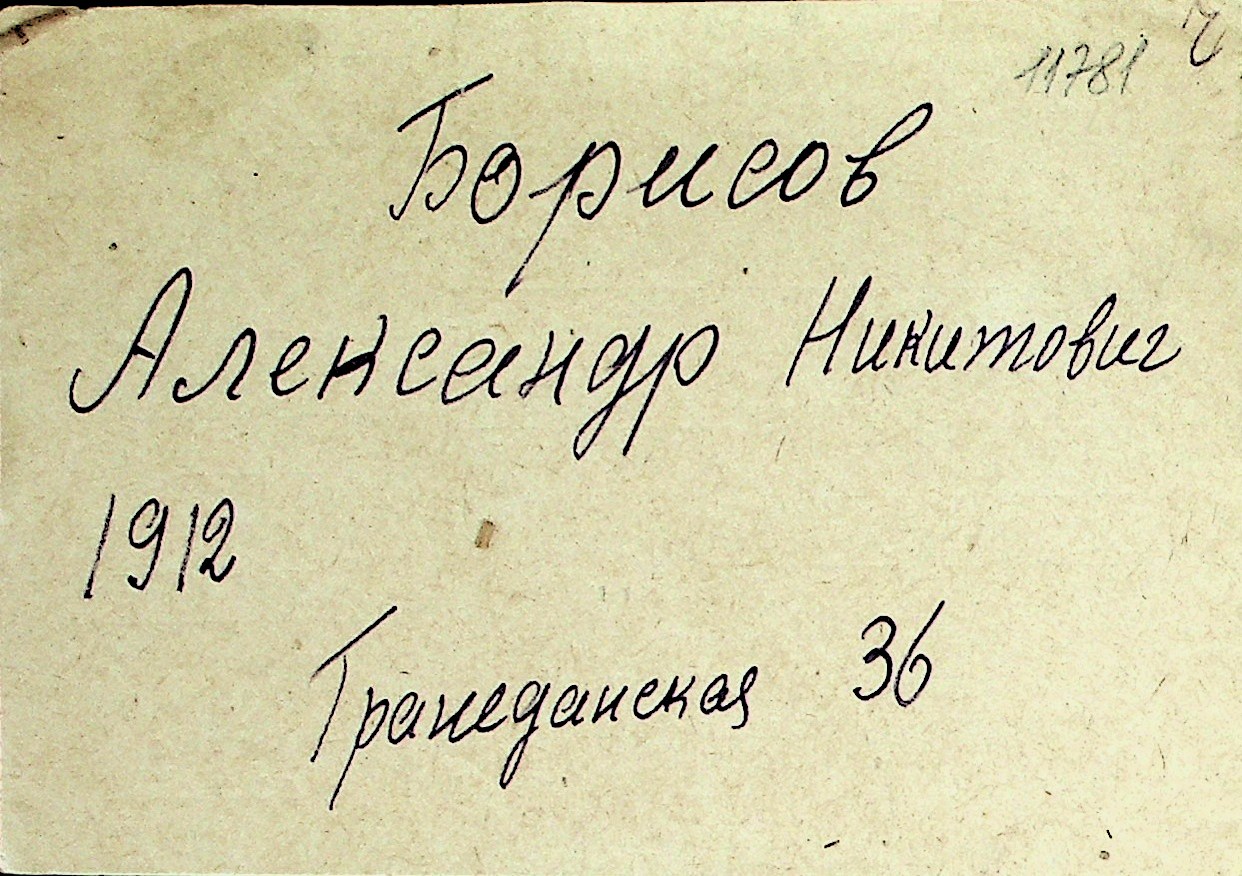 11781
Борисов
Александр Никитович
1912
Гражданская 36